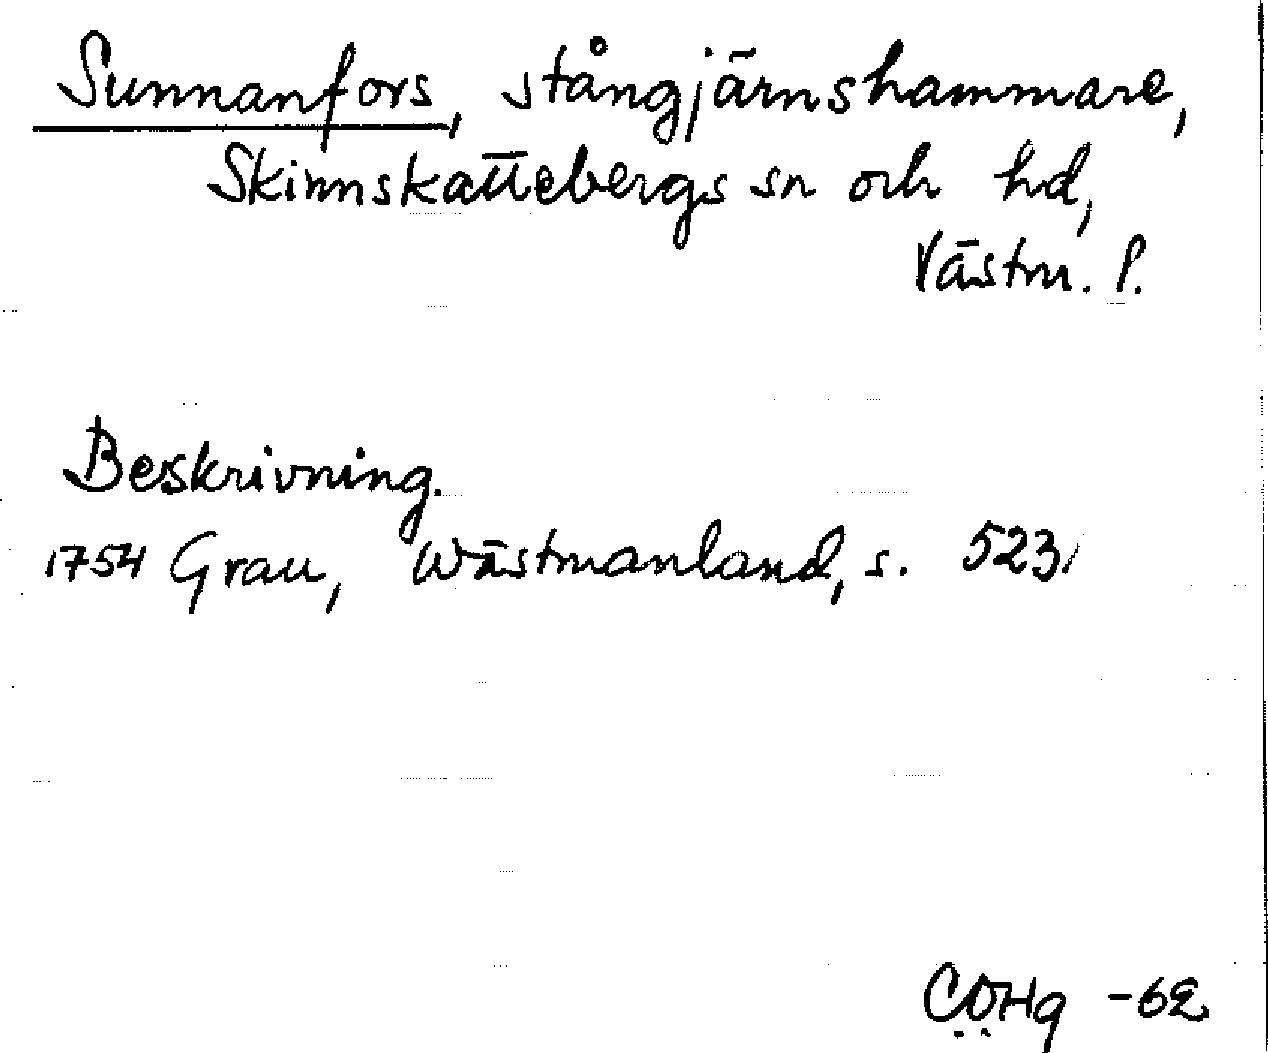 Sunnanfors, stångjärnshammare,
Skinnskattebergs sn och hd,
Västm. l.
Beskrivning.
1754 Grau, Wästmanland, s. 523.
-62